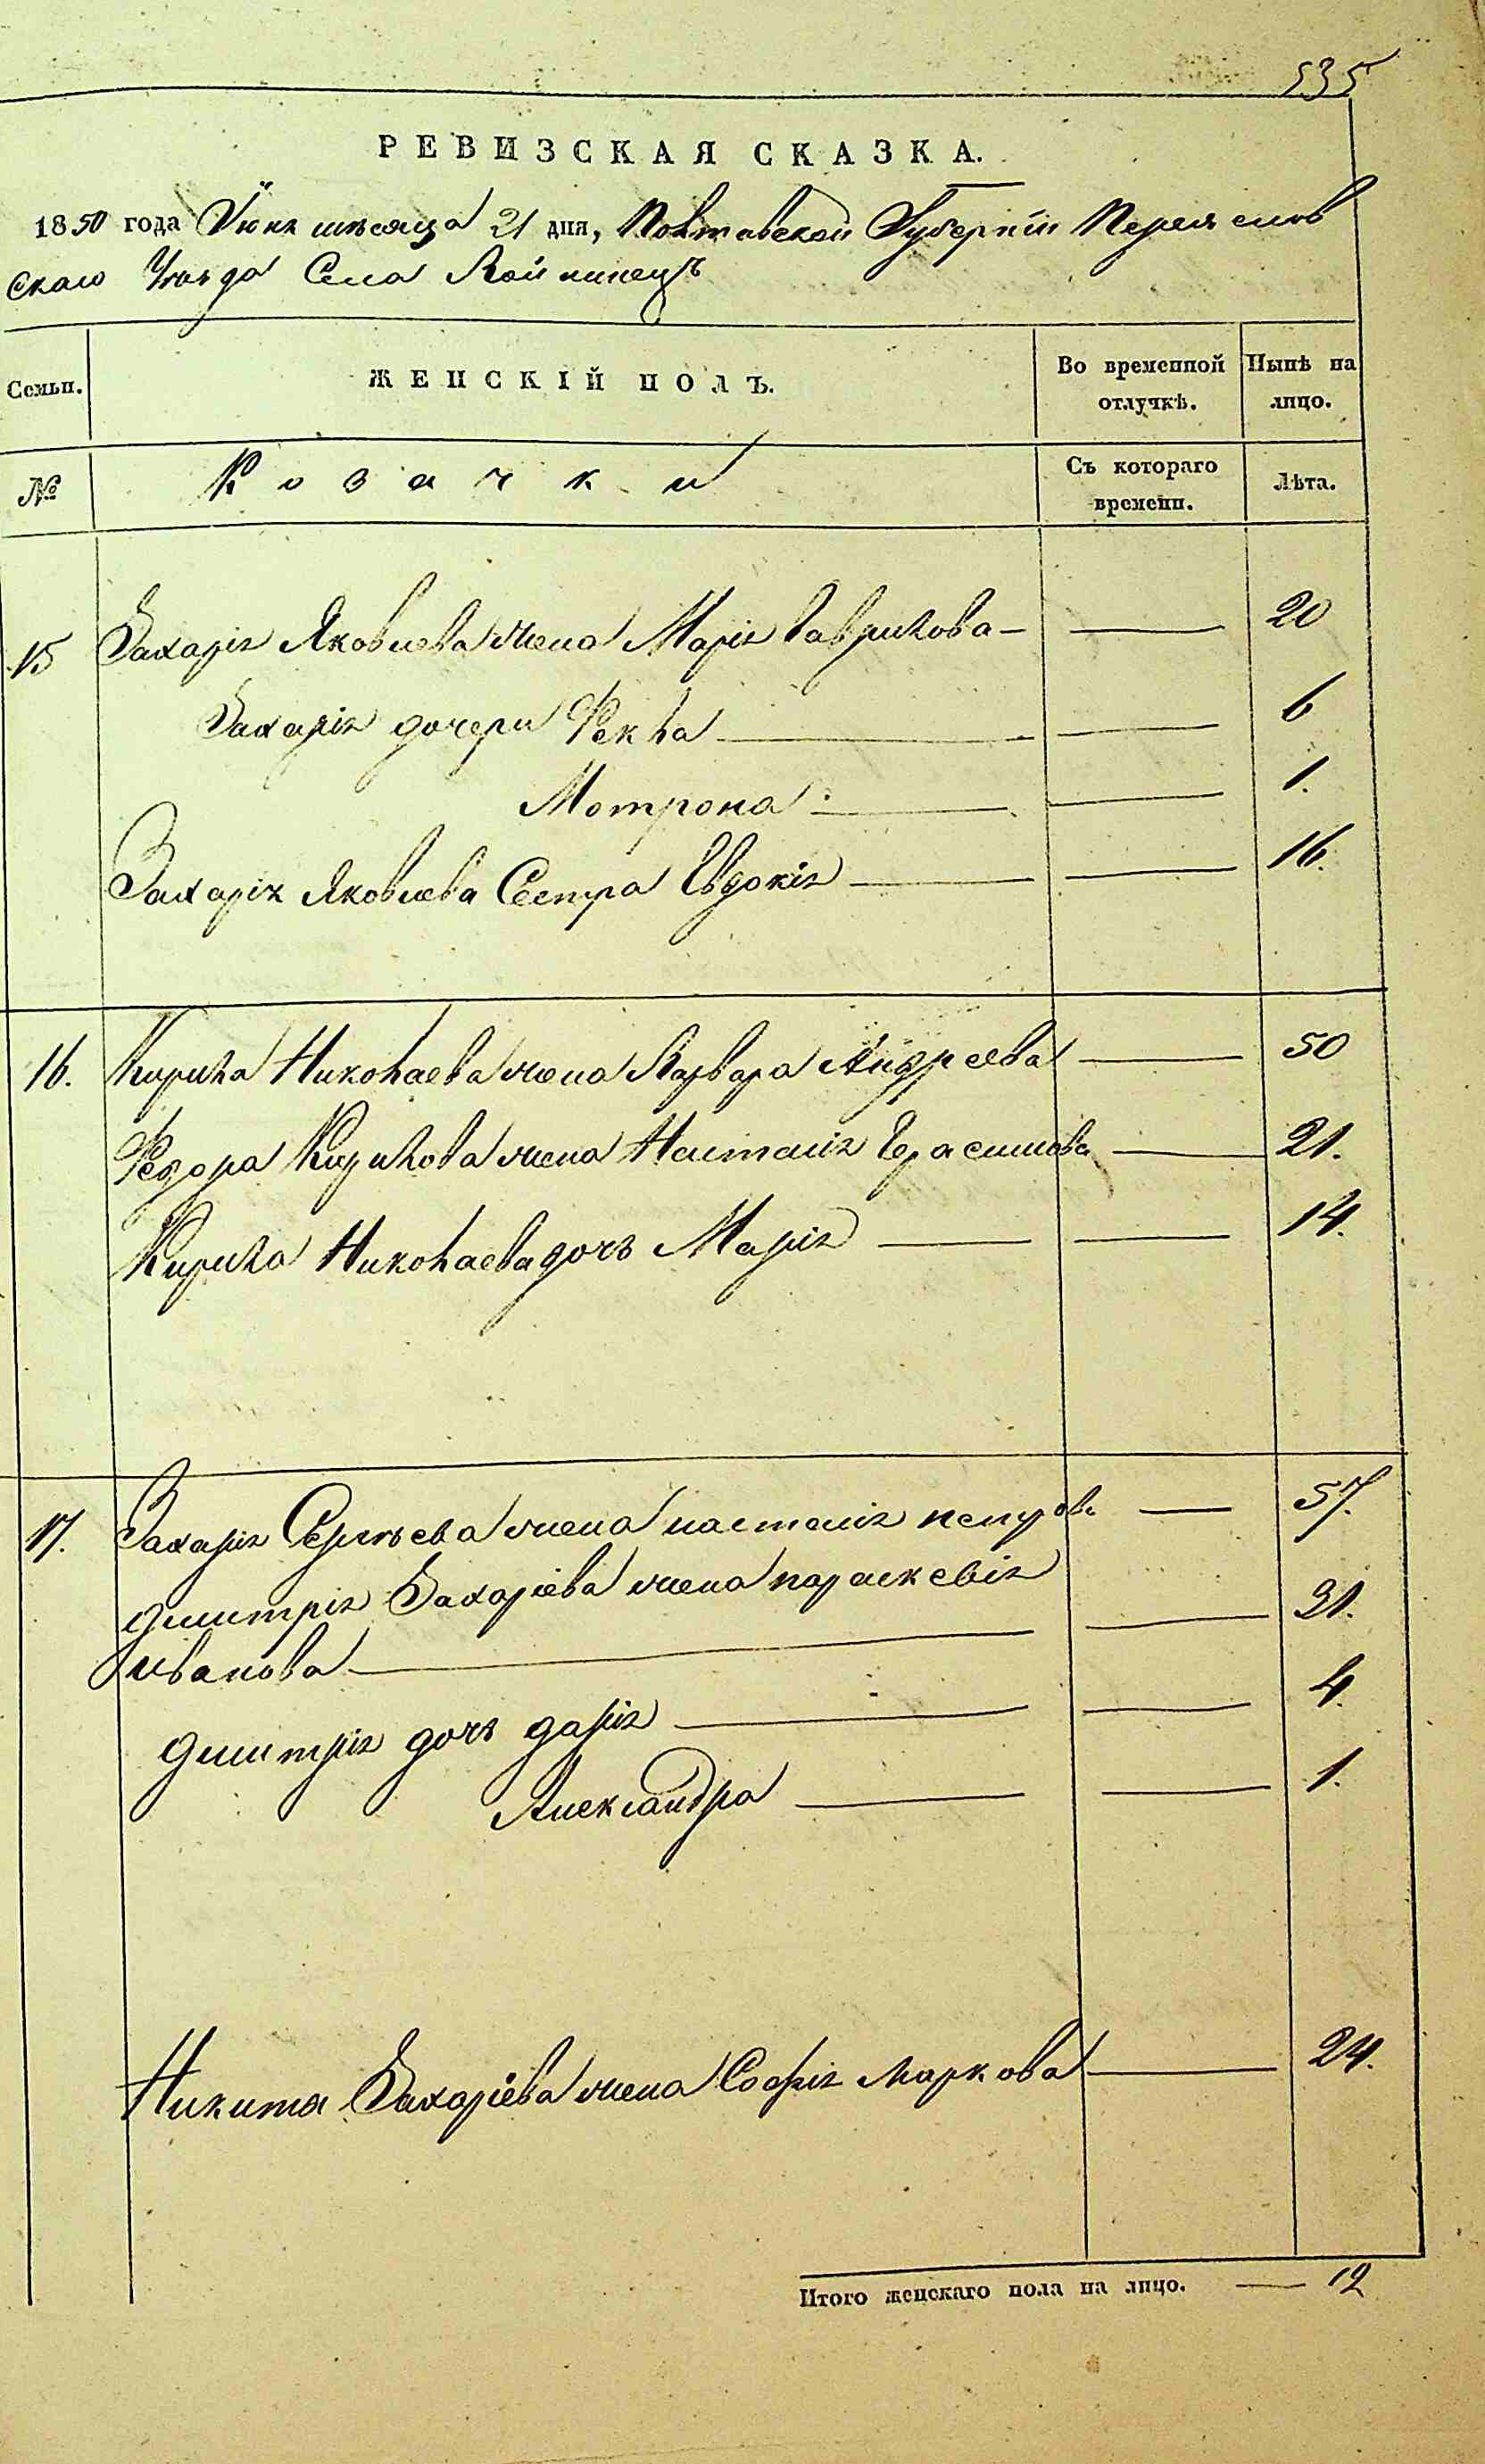 535
РЕВИЗСКАЯ СКАЗКА.
1850 года Июня месяца 21 дня, Полтавской Губерніи Переяслов
скаго Уезда Села Войтинецъ
Семьи. ЖЕНСКІЙ ПОЛЪ. Во временной отлучкѣ. Нынѣ на лицо.
№ Козачки Съ котораго времени. Лѣта.
15 Захарія Яковлева жена Марія Гаврилова — — 20
Захарія дочери Фекла — — 6
Мотрона — — 1.
Захарія Яковлева Сестра Евдокія — — 16.
16. Кирила Николаева жена Варвара Андреева — 50
Федора Кирилова жена Настасія Герасимова — 21.
Кирила Николаева дочь Марія — — 14.
17. Захарія Сергѣева жена настасія петрова — 57.
дмитрія Захаріева жена параскевія
иванова — — 31.
дмитрія дочь дарія — — 4.
Александра — — 1.
Никита Захаріева жена Софія Маркова — 24.
Итого женскаго пола на лицо. — 12